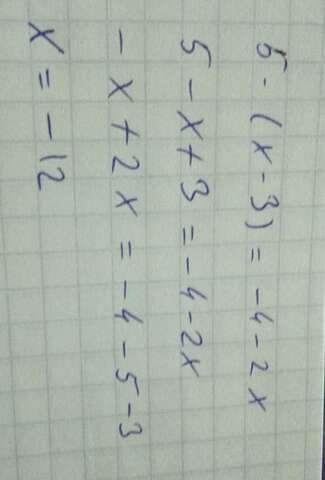 5 - (x - 3) = -4 - 2x
5 - x + 3 = -4 - 2x
- x + 2x = -4 - 5 - 3
x = -12